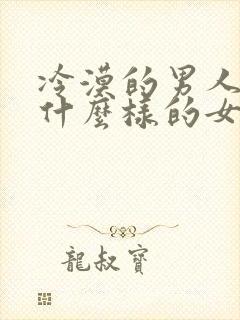 冷漠的男人
什麼樣的女
龍叔寶